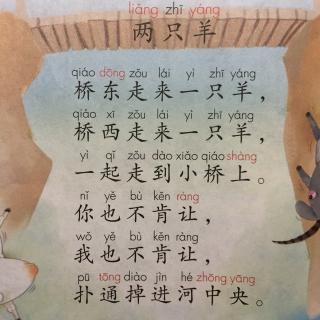 liǎng zhī yáng
两只羊
qiáo dōng zǒu lái yì zhī yáng
桥东走来一只羊，
qiáo xī zǒu lái yì zhī yáng
桥西走来一只羊，
yì qǐ zǒu dào xiǎo qiáo shàng
一起走到小桥上。
nǐ yě bù kěn ràng
你也不肯让，
wǒ yě bù kěn ràng
我也不肯让，
pū tōng diào jìn hé zhōng yāng
扑通掉进河中央。